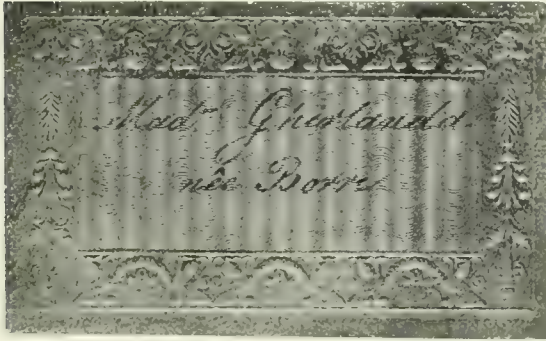 Mad.e Ghirlanda
née Borre